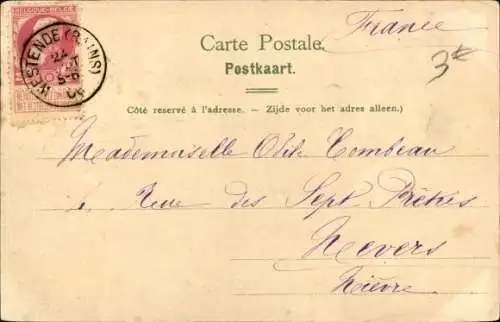 BELGIQUE-BELGIË
WESTENDE (BAINS)
24
5-6
France
Carte Postale.
Postkaart.
3€
Côté reservé à l'adresse. — Zijde voor het adres alleen.)
Mademoiselle Odile Combeau
Rue des Sept Prêtres
Nevers
Nièvre